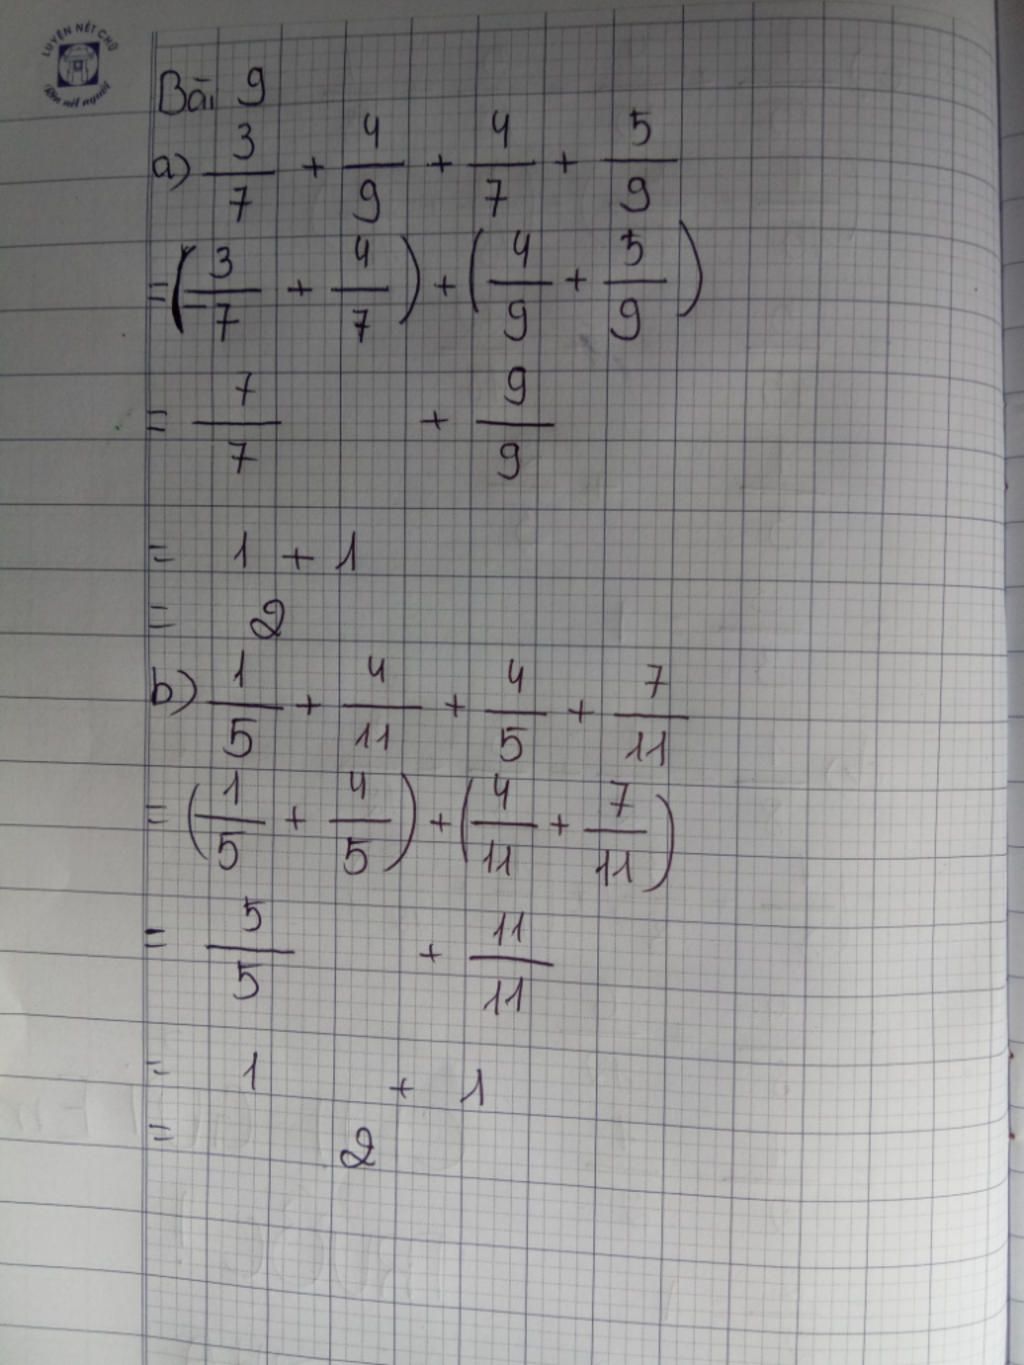 LUYỆN NÉT CHỮ
Rèn nết người
Bài 9
a) 3/7 + 4/9 + 4/7 + 5/9
= (3/7 + 4/7) + (4/9 + 5/9)
= 7/7 + 9/9
= 1 + 1
= 2
b) 1/5 + 4/11 + 4/5 + 7/11
= (1/5 + 4/5) + (4/11 + 7/11)
= 5/5 + 11/11
= 1 + 1
= 2